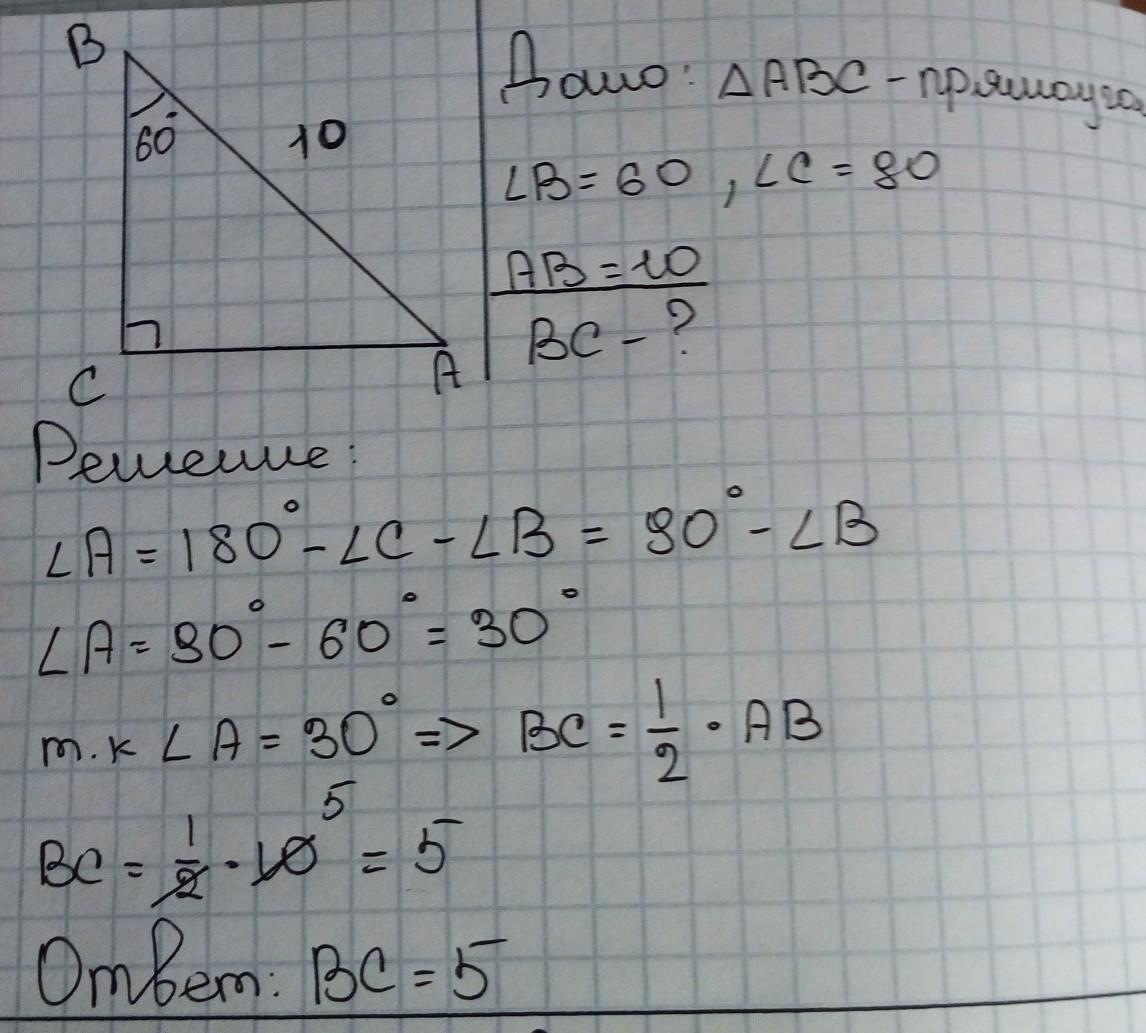 B
60°
10
C
A
Дано: △ABC – прямоуго
∠B = 60 , ∠C = 90
AB = 10
BC – ?
Решение:
∠A = 180° – ∠C – ∠B = 90° – ∠B
∠A = 90° – 60° = 30°
т.к ∠A = 30° => BC = 1/2 · AB
5
BC = 1/2 · 10 = 5
Ответ: BC = 5